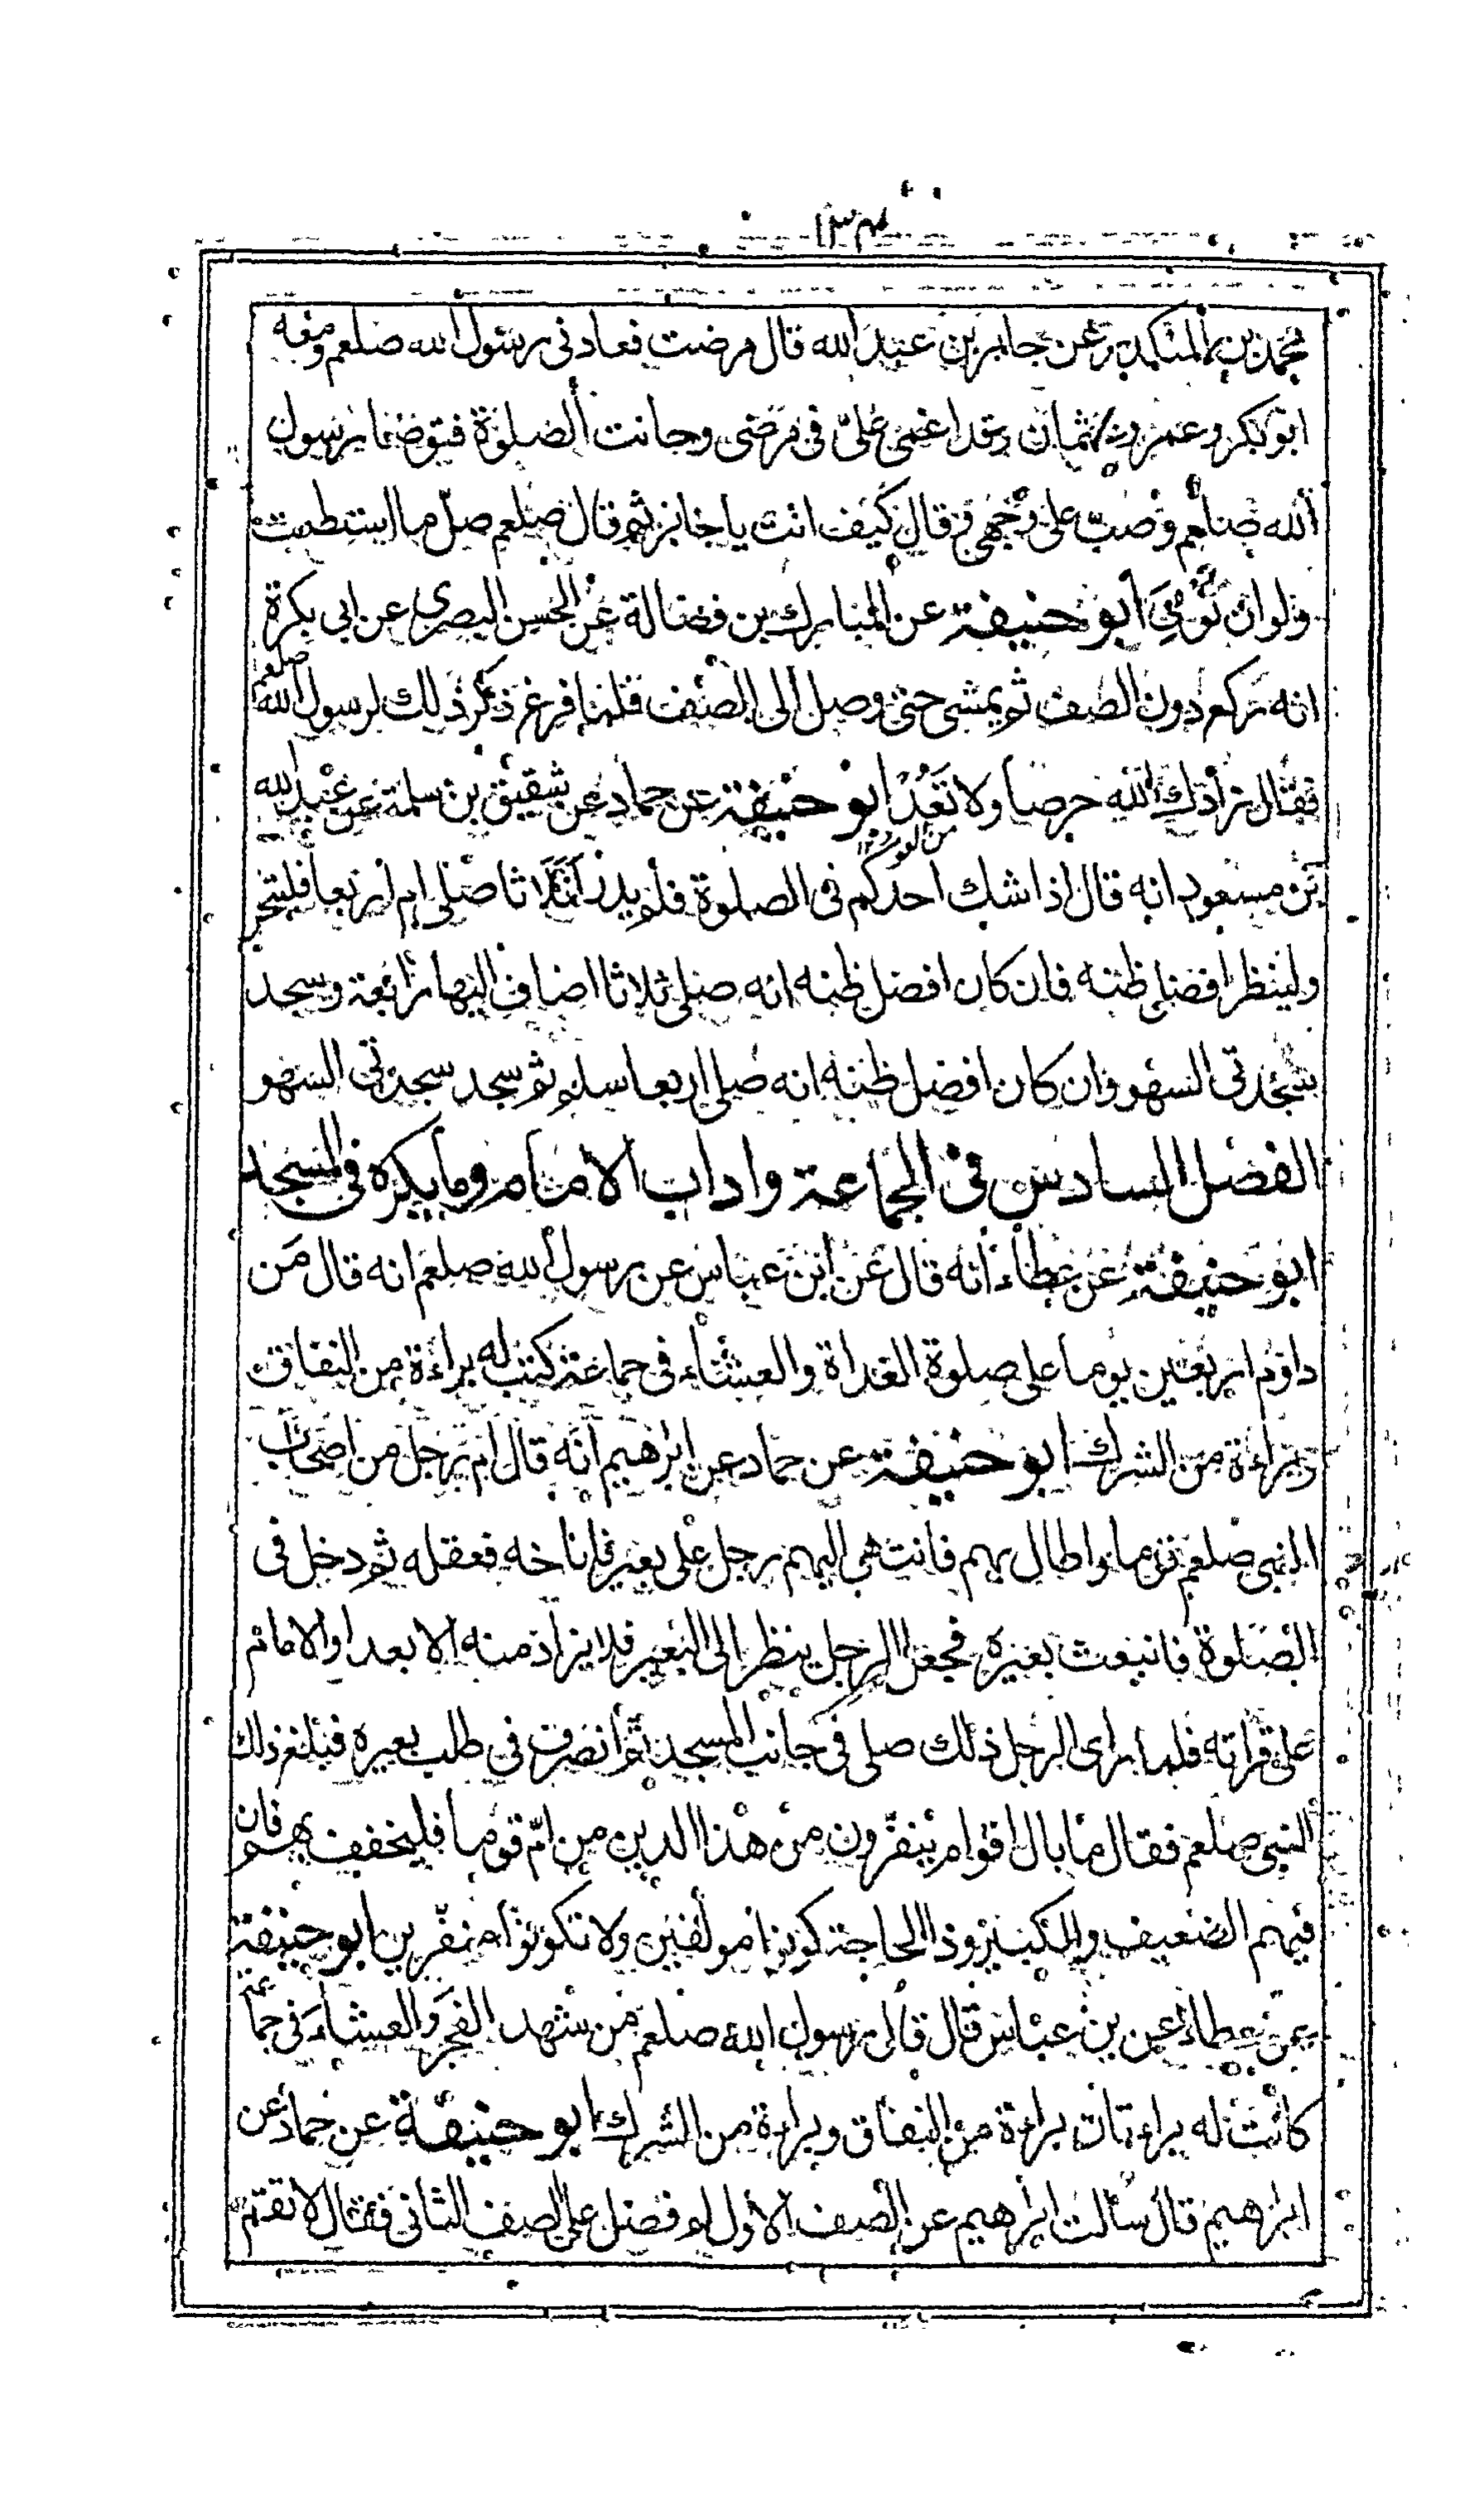 ١٣٤
محمد بن المنكدر عن جابر بن عبد الله قال مرضت فعادنى رسول الله صلعم ومعه
ابو بكر وعمر وعثمان وقد اغمى على فى مرضى وحانت الصلوة فتوضا رسول
الله صلعم وصب على وجهى وقال كيف انت يا جابر ثم قال صلعم صل ما استطعت
ولو ان تومى ابو حنيفة عن المبارك بن فضالة عن الحسن البصرى عن ابى بكرة
انه ركع دون الصف ثم مشى حتى وصل الى الصف فلما فرغ ذكر ذلك لرسول الله صلعم
فقال زادك الله حرصا ولا تعد ابو حنيفة عن حماد عن شقيق بن سلمة عن عبد الله
بن مسعود انه قال اذا شك احدكم فى الصلوة فلم يدر اثلاثا صلى ام اربعا فليتحر
ولينظر افضل ظنه فان كان افضل ظنه انه صلى ثلاثا اضاف اليها رابعة وسجد
سجدتى السهو وان كان افضل ظنه انه صلى اربعا سلم ثم سجد سجدتى السهو
الفصل السادس فى الجماعة واداب الامام وما يكره فى المسجد
ابو حنيفة عن عطاء انه قال عن ابن عباس عن رسول الله صلعم انه قال من
داوم اربعين يوما على صلوة الغداة والعشاء فى جماعة كتب له براءة من النفاق
وبراءة من الشرك ابو حنيفة عن حماد عن ابرهيم انه قال ام رجل من اصحاب
النبى صلعم قوما واطال بهم فانتهى اليهم رجل على بعير فاناخه فعقله ثم دخل فى
الصلوة فانبعث بعيره فجعل الرجل ينظر الى البعير فلا يزاد منه الا بعدا والامام
على قراته فلما راى الرجل ذلك صلى فى جانب المسجد ثم انصرف فى طلب بعيره فبلغ ذلك
النبى صلعم فقال ما بال اقوام ينفرون من هذا الدين من ام قوما فليخفف بهم فان
فيهم الضعيف والكبير وذا الحاجة كونوا مولفين ولا تكونوا منفرين ابو حنيفة
عن عطاء عن بن عباس قال قال رسول الله صلعم من شهد الفجر والعشاء فى جماعة
كانت له براءتان براءة من النفاق وبراءة من الشرك ابو حنيفة عن حماد عن
ابرهيم قال سالت ابرهيم عن الصف الاول له فضل على الصف الثانى فقال لا تقم